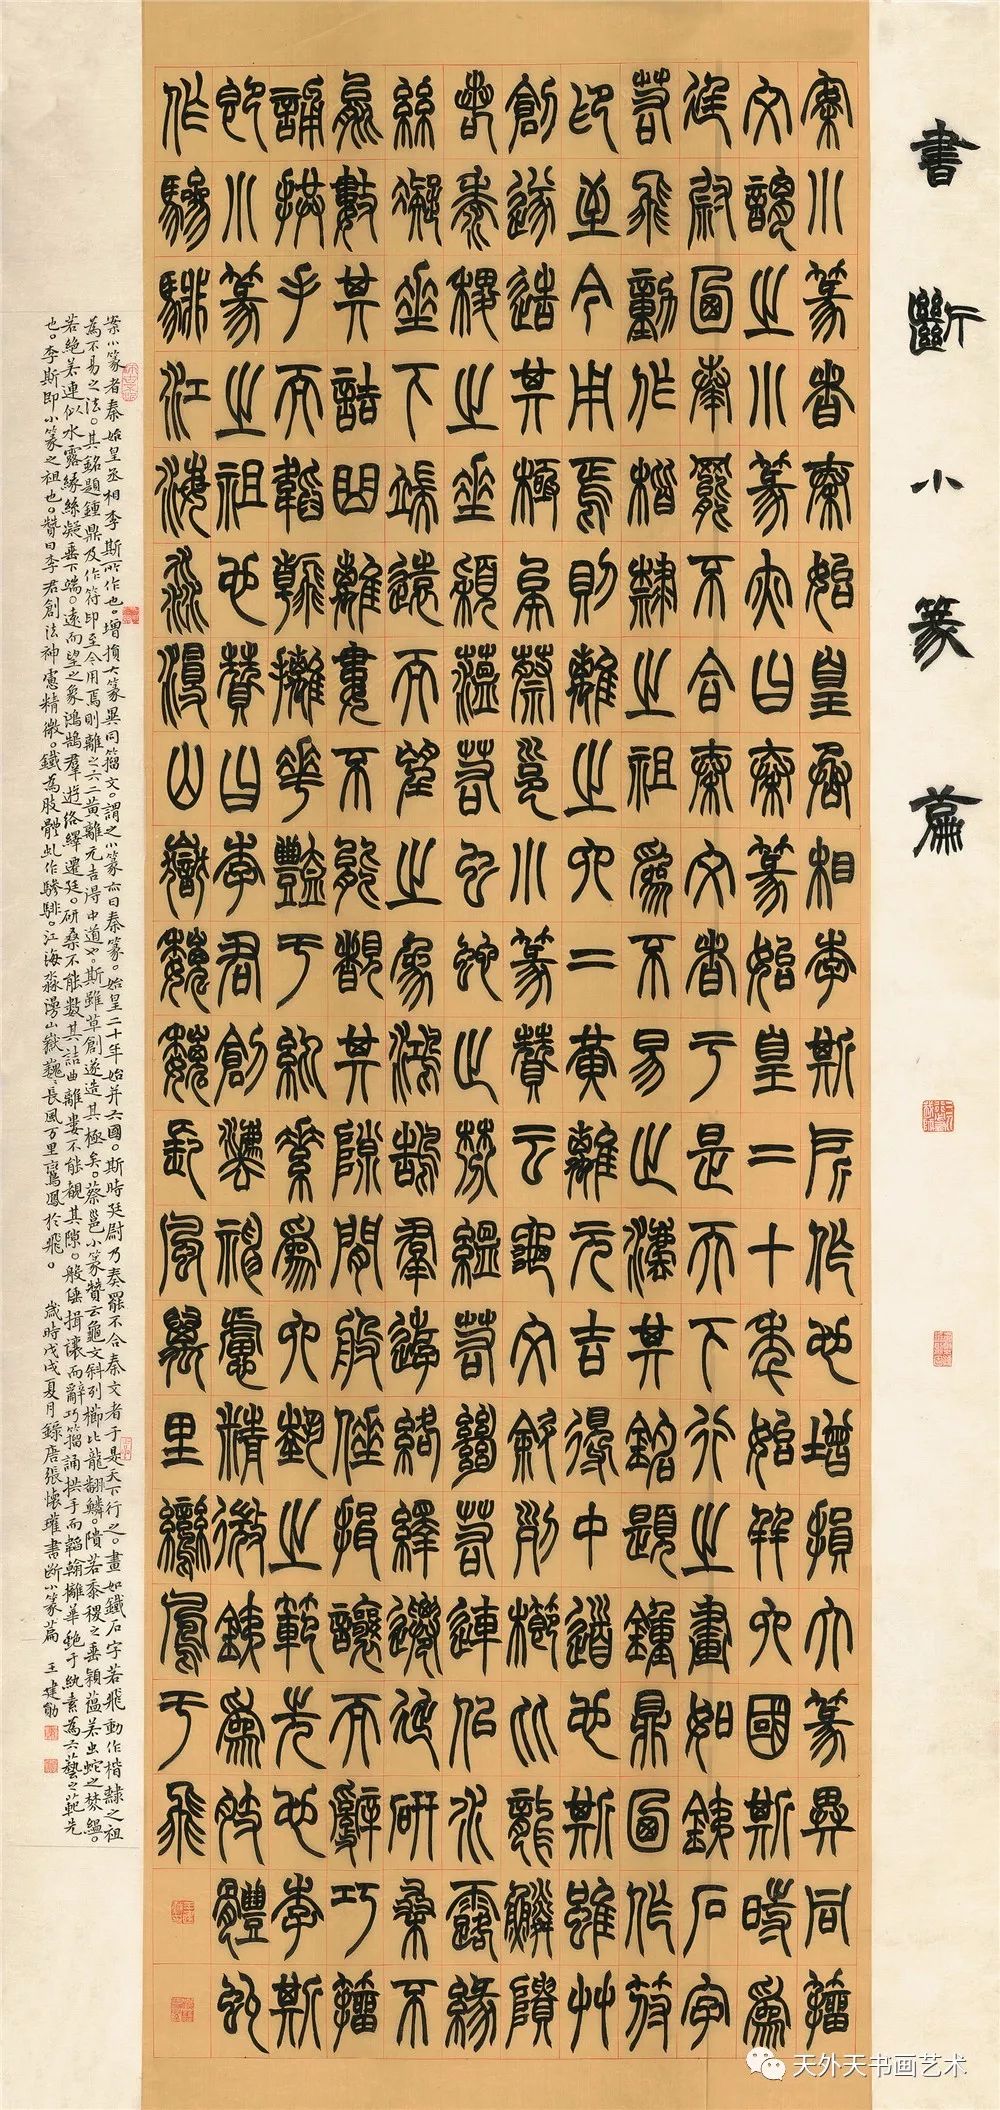 書斷小篆篇
案小篆者秦始皇丞相李斯所作也增損大篆異同籀
文謂之小篆亦曰秦篆始皇二十年始并六國斯時為
廷尉乃奏罷不合秦文者于是天下行之畫如鐵石字
若飛動作楷隸之祖為不易之法其銘題鍾鼎及作符
印至今用焉則離之六二黃離元吉得中道也斯雖草
創遂造其極矣蔡邕小篆贊云龜文斜列櫛比龍鱗隤
若黍稷之垂穎蘊若虫蛇之棼緼若絕若連似水露緣
絲凝垂下端遠而望之象鴻鵠羣遊絡繹遷延研桑不
能數其詰曲離婁不能覩其隙間般倕揖讓而辭巧籀
誦拱手而韜翰摛華艷于紈素為六藝之範先也李斯
即小篆之祖也贊曰李君創法神慮精微鐵為肢體虬
作驂騑江海淼漫山嶽巍巍長風萬里鸞鳳于飛
案小篆者秦始皇丞相李斯所作也。增損大篆異同籀文。謂之小篆亦曰秦篆。始皇二十年始并六國。斯時廷尉乃奏罷不合秦文者于是天下行之。畫如鐵石字若飛動作楷隸之祖
為不易之法。其銘題鍾鼎及作符印至今用焉則離之六二黃離元吉得中道也。斯雖草創遂造其極矣。蔡邕小篆贊云龜文斜列櫛比龍翻鱗。隤若黍稷之垂穎蘊若虫蛇之棼緼。
若絕若連似水露緣絲凝垂下端。遠而望之象鴻鵠羣遊絡繹遷延。研桑不能數其詰曲離婁不能覩其隙。般倕揖讓而辭巧籀誦拱手而韜翰摛華艷于紈素為六藝之範先
也。李斯即小篆之祖也。贊曰李君創法神慮精微。鐵為肢體虬作驂騑。江海淼漫山嶽巍巍長風万里鸞鳳於飛。 歲時戊戌夏月錄唐張懷瓘書斷小篆篇 王建勛
天外天书画艺术